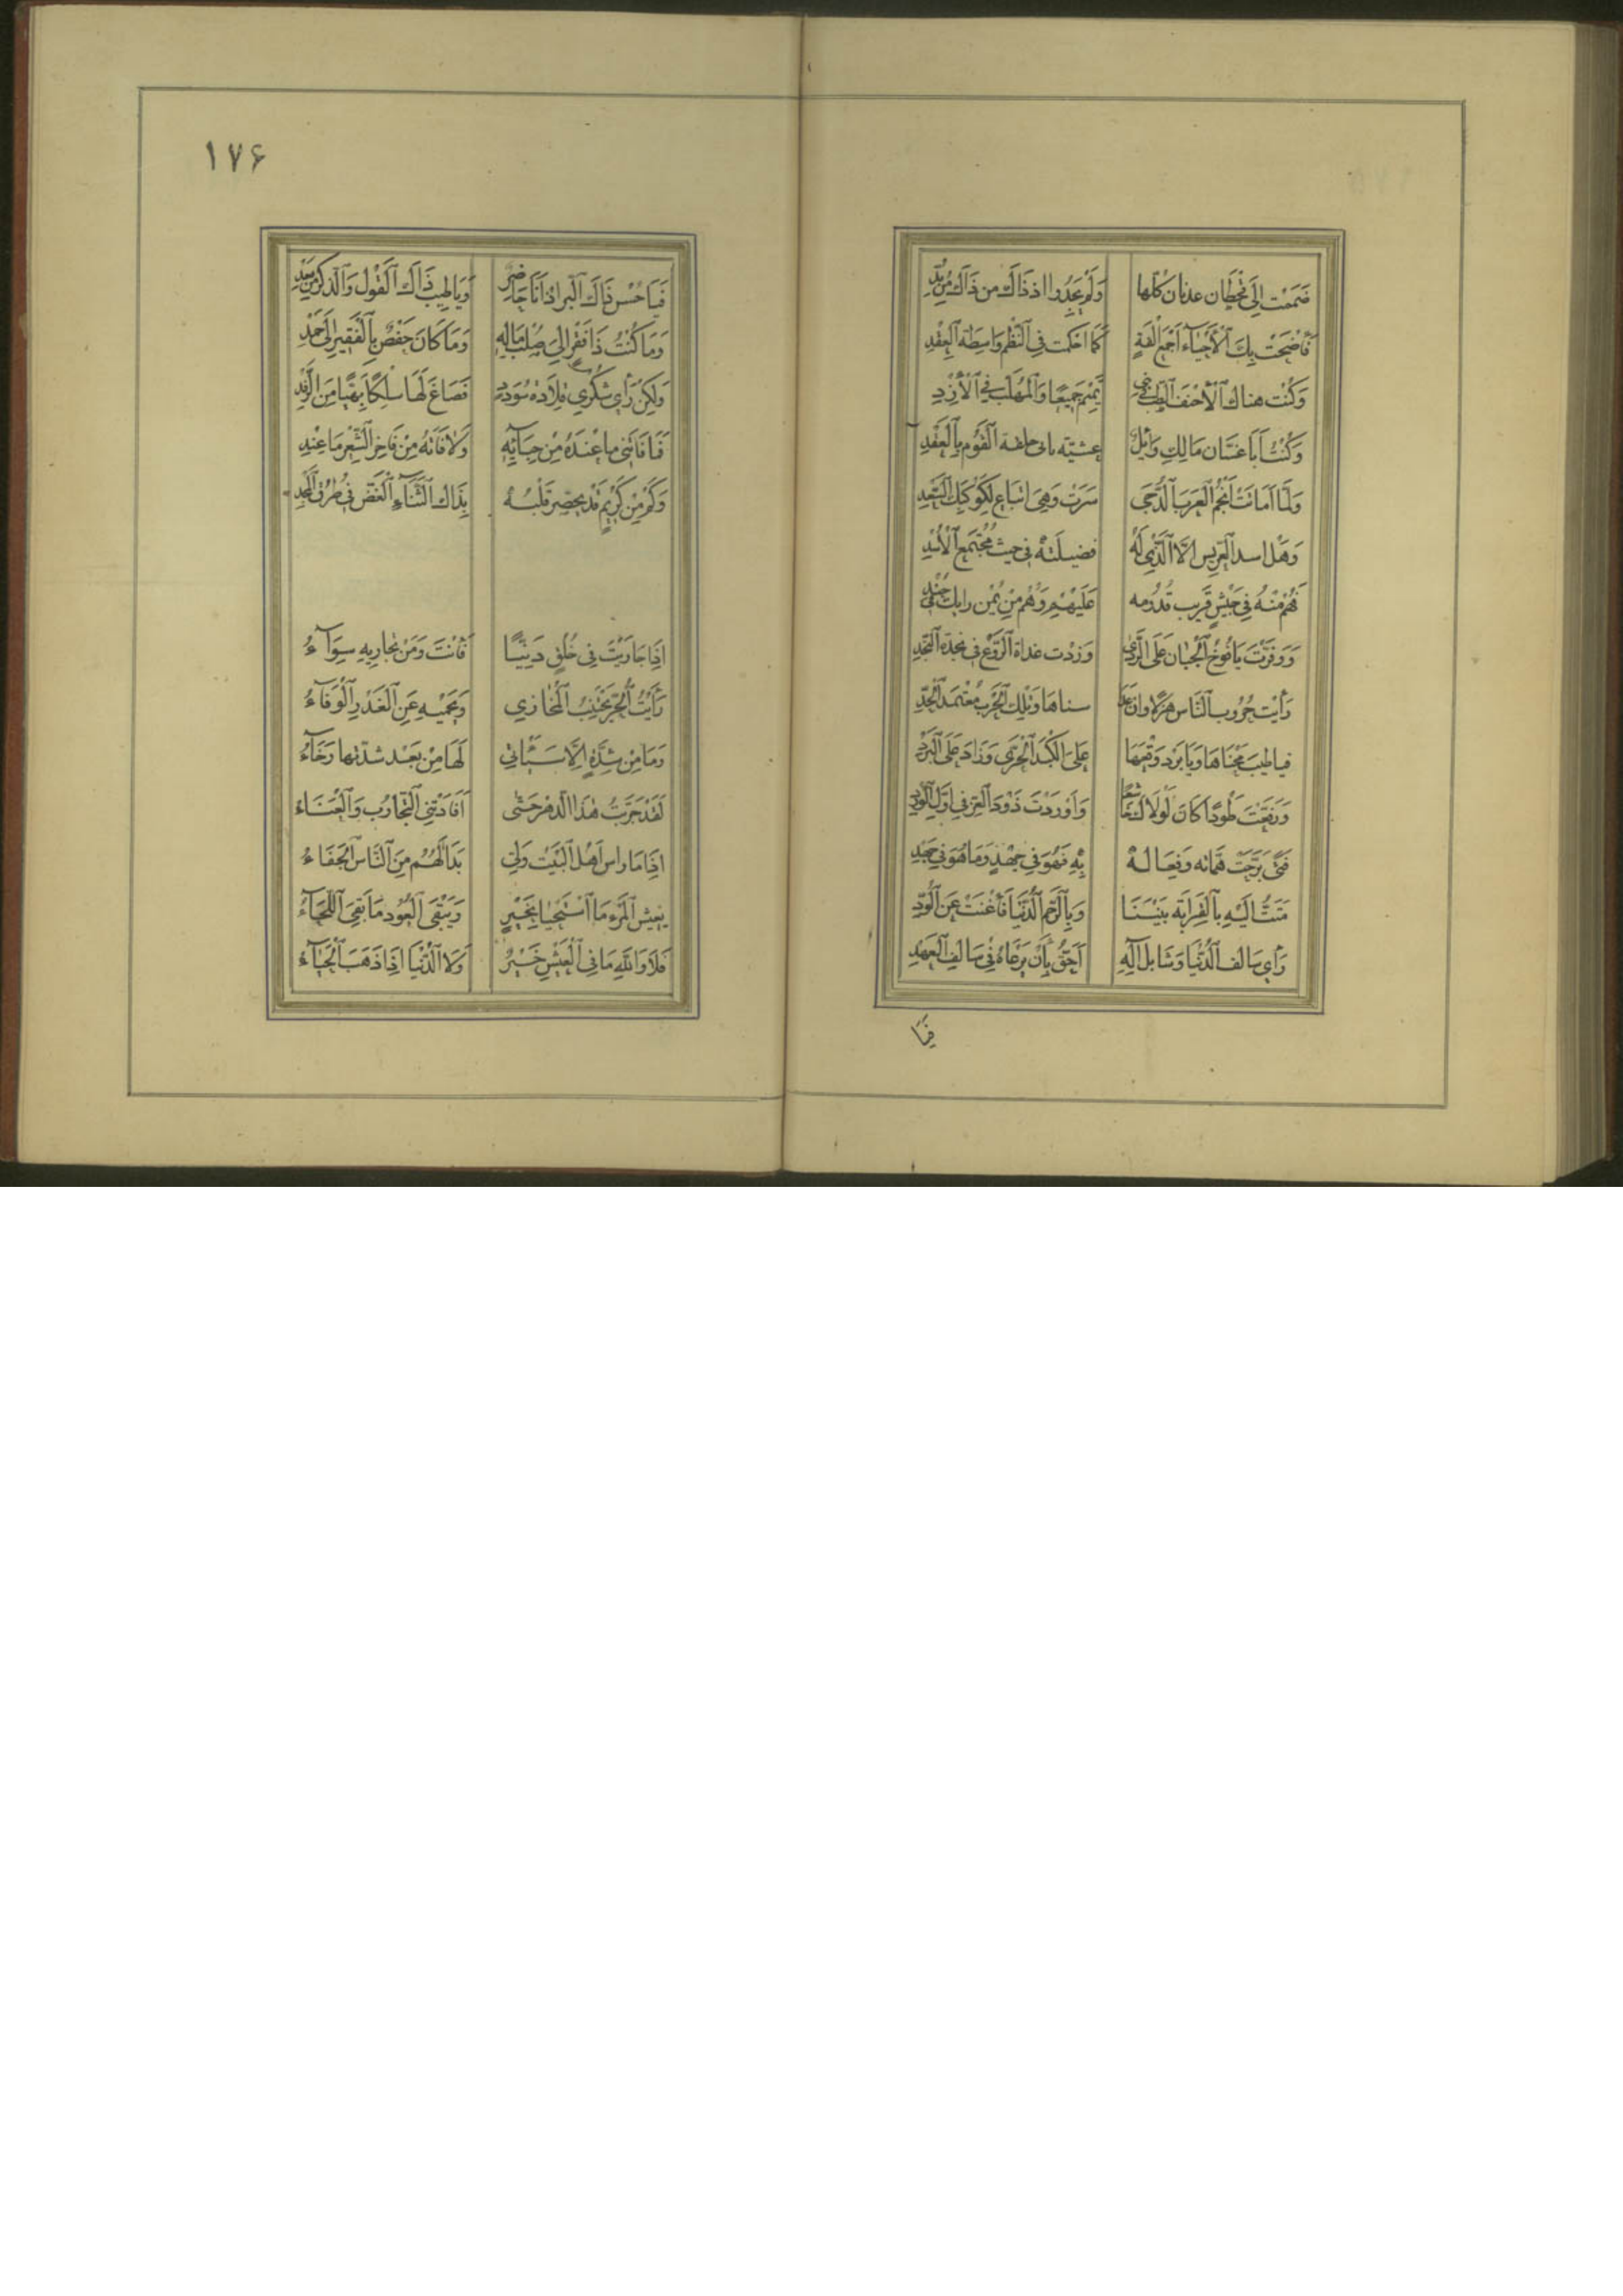 فَضَمَمْتَ إِلَى قَحْطَان عدنان كُلَّها وَلَمْ يَجِدُوا اذ ذَاكَ من ذَاكَ مِنْ بُدِّ
فَأَضْحَتْ بِكَ الْأَحْيَاءُ أَجْمَعُ أُلْفَةً كَمَا احكمت فِي النَّظْمِ وَاسِطَةُ الْعِقْدِ
وَكُنْتَ هناك الْأَحْنَفَ الطبّ فِي تَمِيم جَمِيعًا وَالْمُهَلَّبَ فِي الْأَزْدِ
وَكُنْتَ أَبَا غَسَّان مَالِكِ وَائِلٍ عشيّة حلفه الْقَوْمِ بِالْعَقْدِ
وَلَمَّا أَمَاتَتْ أَنْجُمُ الْعَرَبِ الدُّجَى سَرَتْ وَهِيَ اتباع لِكَوْكَبِكَ السَّعْدِ
وَهَل اسد الْعِرِّيسِ إِلَّا الَّذِي لَهُ فَضِيلَتُهُ فِي حيث مُجْتَمَعِ الْأُسْدِ
فَهُمْ مِنْهُ فِي جَيْشٍ قَرِيب قُدُومه عَلَيْهِمْ وَهُمْ مِنْ يُمْن رايك فِي جُنْدِ
وَوَفَّرْتَ يَافُوخَ الْجَبَان عَلَى الرَّدَى وَزِدْت غداة الرَّوْعِ فِي نجدة النَّجْدِ
رَأَيْت حُرُوب النَّاس هَزْلًا وان عَلَا سناها وَتِلْك الْحَرْبُ مُعْتَمَدُ الْجِدِّ
فيا طيبَ مَجْنَاهَا وَيَا بَرْد وَقْعِهَا عَلَى الْكَبِدِ الْحَرَّى وَزَادَ عَلَى الْبَرْدِ
وَرَفَعْتَ طَوْدًا كَانَ لَوْلَاكَ خَاشِعًا وَأَوْرَدْتَ ذَوْدَ الْعِزِّ فِي أَوَّلِ الْوِرْدِ
فَتًى بَرَّحَتْ هماته وَفِعَالُهُ بِهِ فَهْوَ فِي جَهْدٍ وَمَا هُوَ فِي جَهْدِ
مَتَتُّ إِلَيْهِ بِالْقَرَابَة بَيْنَنَا وَبِالرَّحِمِ الدُّنْيَا فَأَغْنَتْ عَنِ الْوُدِّ
رَأَى سَالف الدُّنْيَا وَشَابكَ آلِهِ أَحَقَّ بِأَنْ يَرْعَاهُ فِي سَالِفِ الْعَهْدِ
فَيَا
١٧۶
فَيَا حُسْن ذَاكَ الْبِرّ اذ أَنَا حَاضِر وَيَا طِيبَ ذَاكَ الْقَوْل وَالذِّكْر مِنْ بَعْدِ
وَمَا كُنْتُ ذَا فَقْرٍ إِلَى صُلْبِ مَالِهِ وَمَا كَانَ حَفْصٌ بِالْفَقِيرِ إِلَى حَمْدِ
وَلَكِنْ رَأَى شُكْرِي قِلَادَةَ سُؤْدَدٍ فَصَاغَ لَهَا سِلْكًا بَهِيًّا مِنَ الرِّفْدِ
فَمَا فَاتَنِي مَا عِنْدَهُ مِنْ حِبَائِهِ وَلَا فَاتَهُ مِنْ فَاخِرِ الشِّعْرِ مَا عِنْدِي
وَكَمْ مِنْ كَرِيمٍ قَدْ يخضّر قَلْبُهُ بِذَاكَ الثَّنَاءِ الْغَضِّ فِي طُرُقِ الْمَجْدِ
إِذَا جَارَيْتَ فِي خُلُقٍ دَنِيًّا فَأَنْتَ وَمَنْ تُجَارِيهِ سِوَآءُ
رَأَيْتُ الْحُرَّ يَجْتَنِبُ الْمَخَازِي وَيَحْمِيهِ عَنِ الْغَدْرِ الْوَفَآءُ
وَمَا مِنْ شِدَّةٍ إِلَّا سَيَأْتِي لَهَا مِنْ بَعْدِ شدّتها رَخَآءُ
لَقَدْ جَرَّبْتُ هَذَا الدَّهْرَ حَتَّى أَفَادَتْنِي التَّجَارُبُ وَالْعَنَاءُ
إِذَا مَا رَاس أَهْلِ الْبَيْتِ وَلَّى بَدَا لَهُمْ مِنَ النَّاسِ الْجَفَاءُ
يَعِيشُ الْمَرْءُ مَا اسْتَحْيَا بِخَيْرٍ وَيَبْقَى الْعُودُ مَا بَقِيَ اللِّحَآءُ
فَلَا وَاللَّهِ مَا فِي الْعَيْشِ خَيْرٌ وَلَا الدُّنْيَا إِذَا ذَهَبَ الْحَيَآءُ